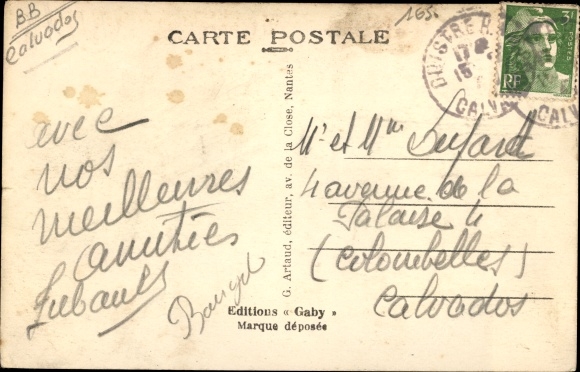 B.B
Calvados
165
CARTE POSTALE
3F
POSTES
RF
OUISTREHAM
17
15
CALVADOS
avec
nos
meilleures
amitiés
G. Artaud, éditeur, av. de la Close, Nantes
Mr et Mme
4 avenue de la
Falaise 4
(Colombelles)
Calvados
Editions « Gaby »
Marque déposée